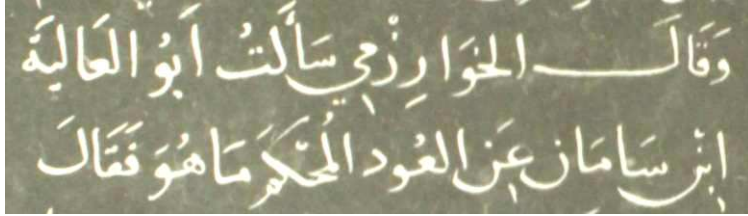 وَقَالَ الخوَارِزْمِي سَأَلتُ أَبُو العَاليَّة
ابْن سَامَان عَن العُود المُحَّكَمْ مَا هُوَ فَقَالَ